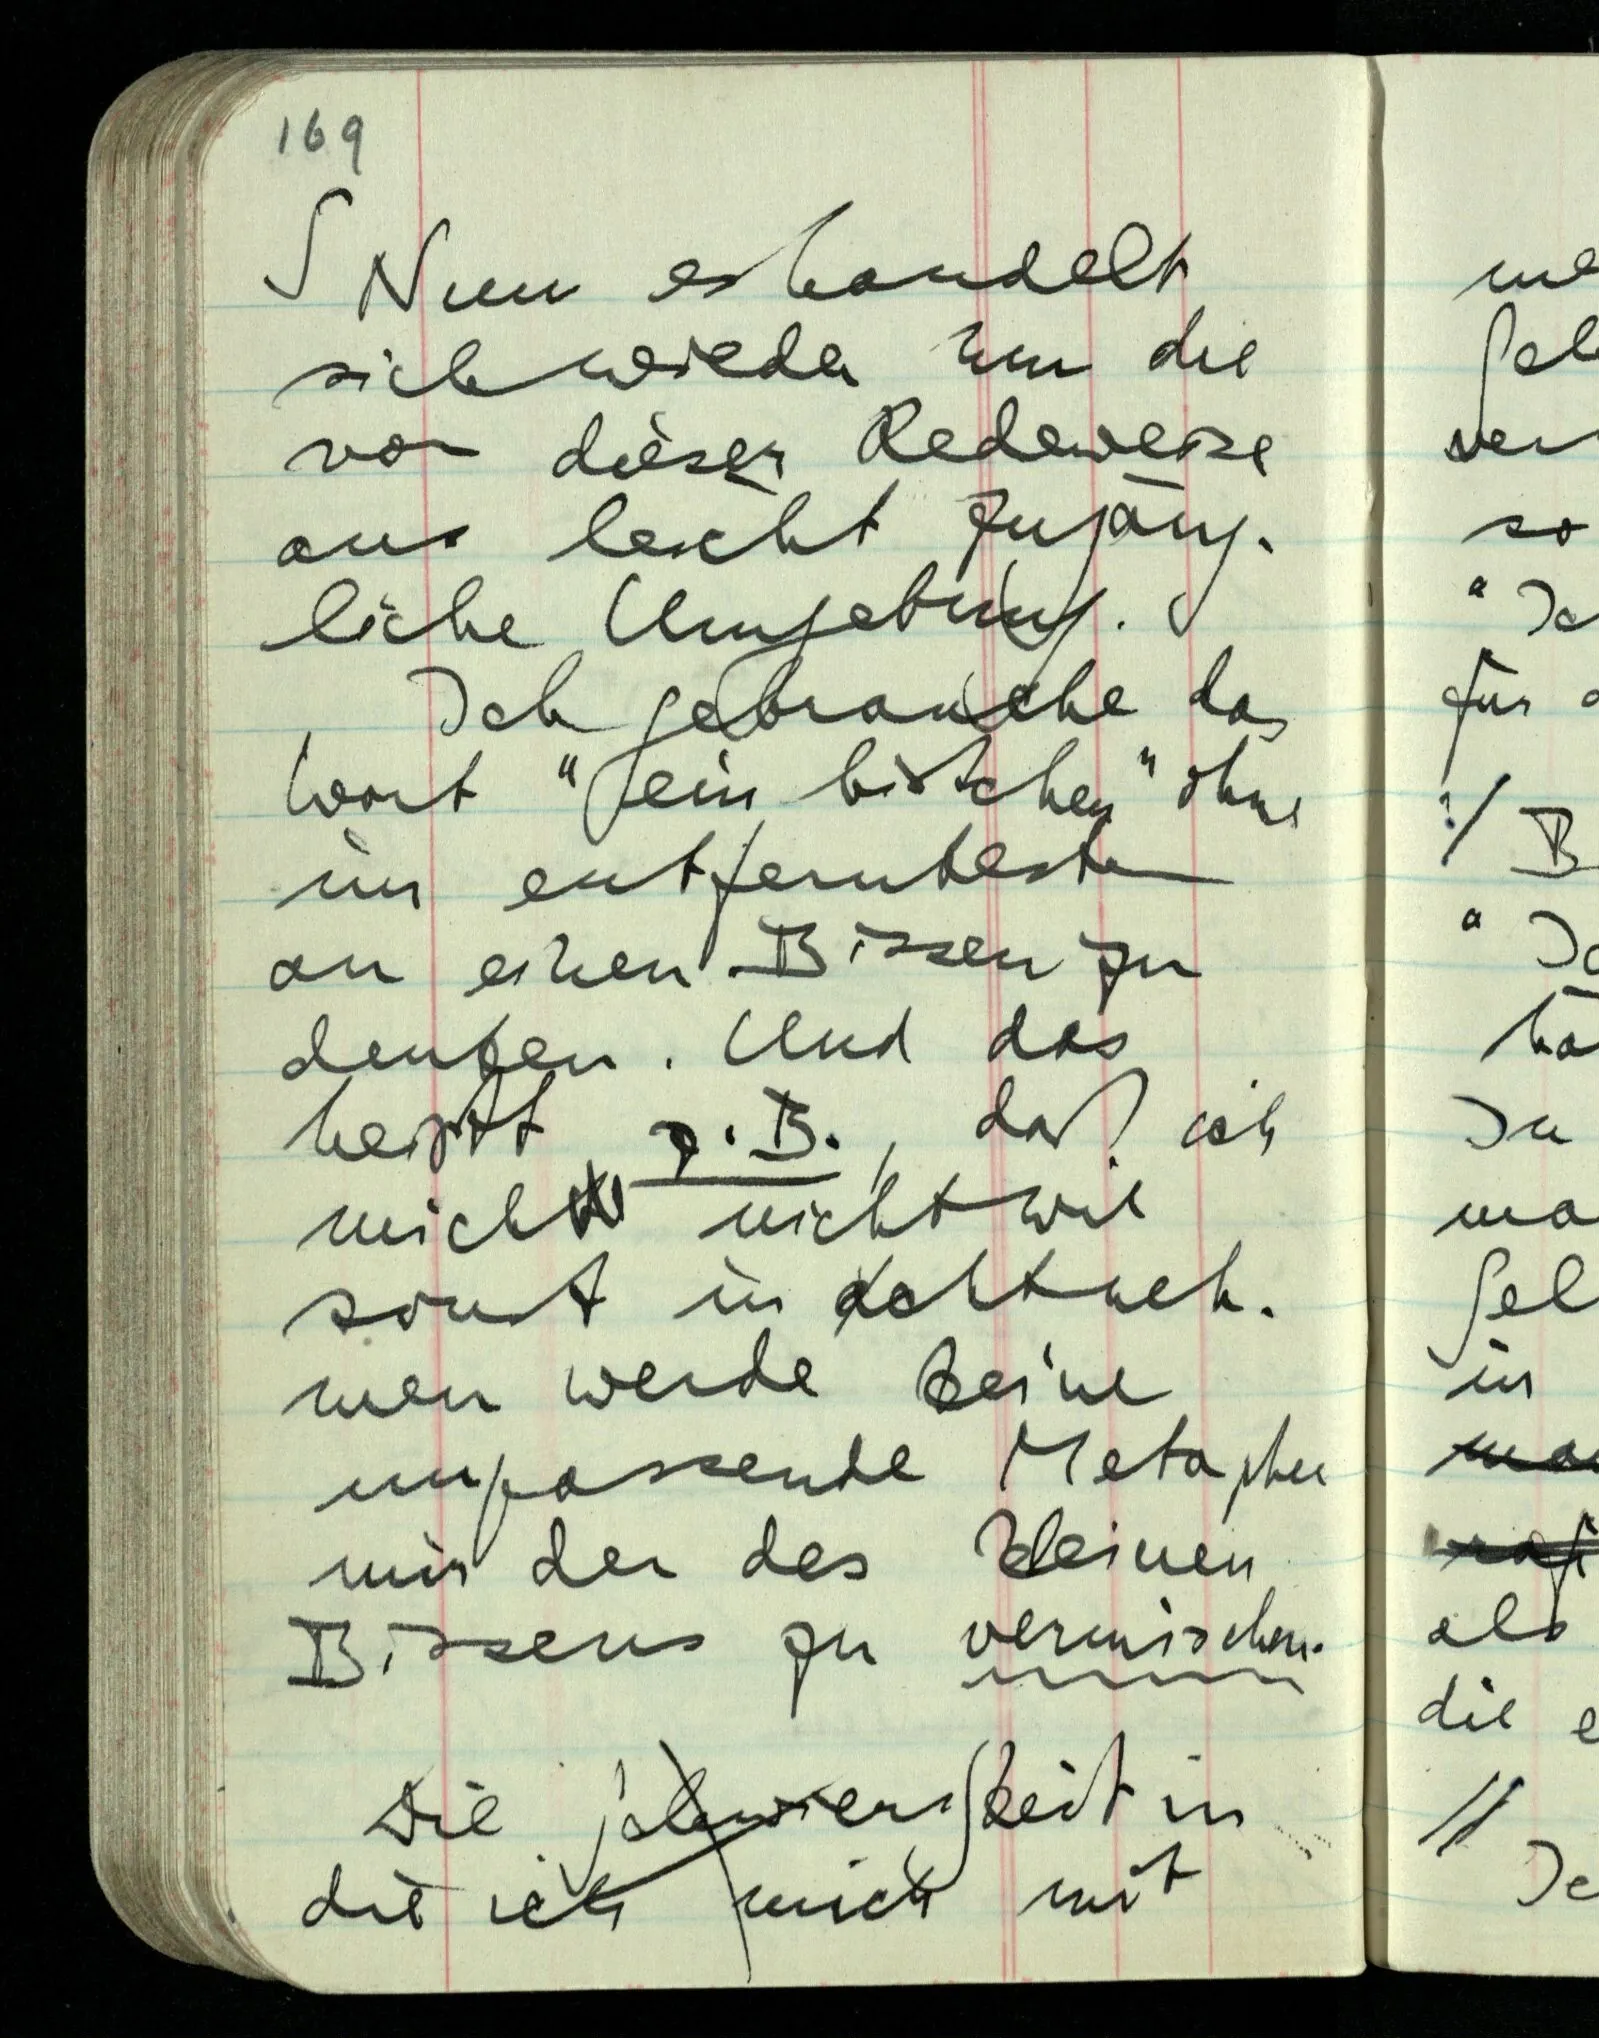 169
∫ Nun es handelt
sich wieder um die
von dieser Redeweise
aus leicht zugäng-
liche Umgebung.
Ich gebrauche das
Wort "ein bisschen" ohne
im entferntesten
an einen Bissen zu
denken. Und das
heißt z.B., daß ich
mich nicht wie
sonst in Acht neh-
men werde keine
unpassende Metapher
mir der des kleinen
Bissens zu vermischen.
Die Schwierigkeit in
die ich mich mit
so
"Ich
für
:/ B
"Ja
hä
Du
in
als
die e
//